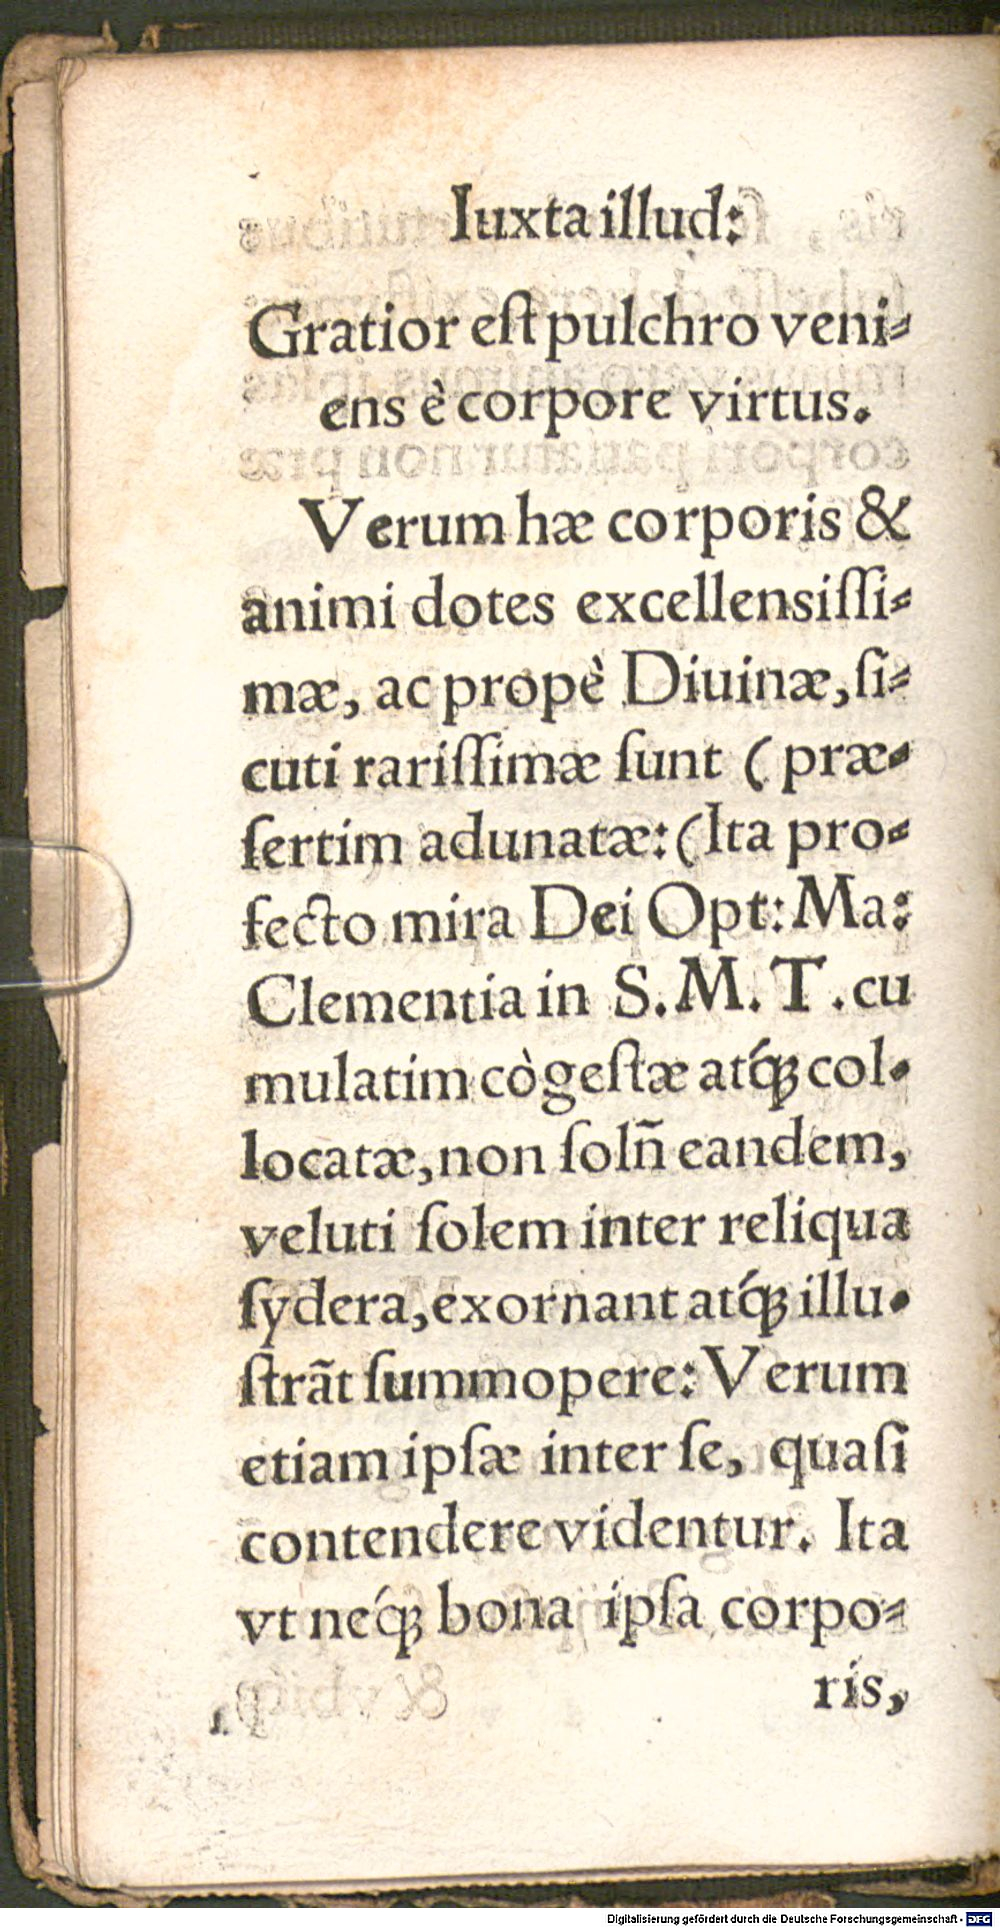 Iuxta illud:
Gratior eſt pulchro veni⸗
ens è corpore virtus.
Verum hæ corporis &
animi dotes excellensiſſi⸗
mæ, ac propè Diuinæ, ſi⸗
cuti rariſſimæ ſunt ( præ⸗
ſertim adunatæ: ( Ita pro⸗
fecto mira Dei Opt: Ma:
Clementia in S. M. T. cu
mulatim cògeſtæ atq́ꝫ col⸗
locatæ, non ſolñ eandem,
veluti ſolem inter reliqua
ſydera, exornant atq́ꝫ illu⸗
ſtrãt ſummopere: Verum
etiam ipſæ inter ſe, quaſi
contendere videntur. Ita
vt neq́ꝫ bona ipſa corpo⸗
ris,
Digitalisierung gefördert durch die Deutsche Forschungsgemeinschaft - DFG